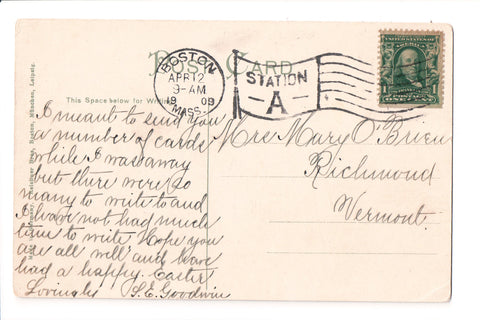 Post Card
This Space below for Writing
BOSTON
APR 12
9-AM
1909
MASS.
STATION
A
UNITED STATES
1
ONE CENT
I meant to send you
a number of cards
while I was away
but there were so
many to write to and
I have not had much
time to write Hope you
are all well and have
had a happy Easter
Lovingly S.E. Goodwin
Mrs Mary O'Brien
Richmond
Vermont.
Boston, München, Leipzig.